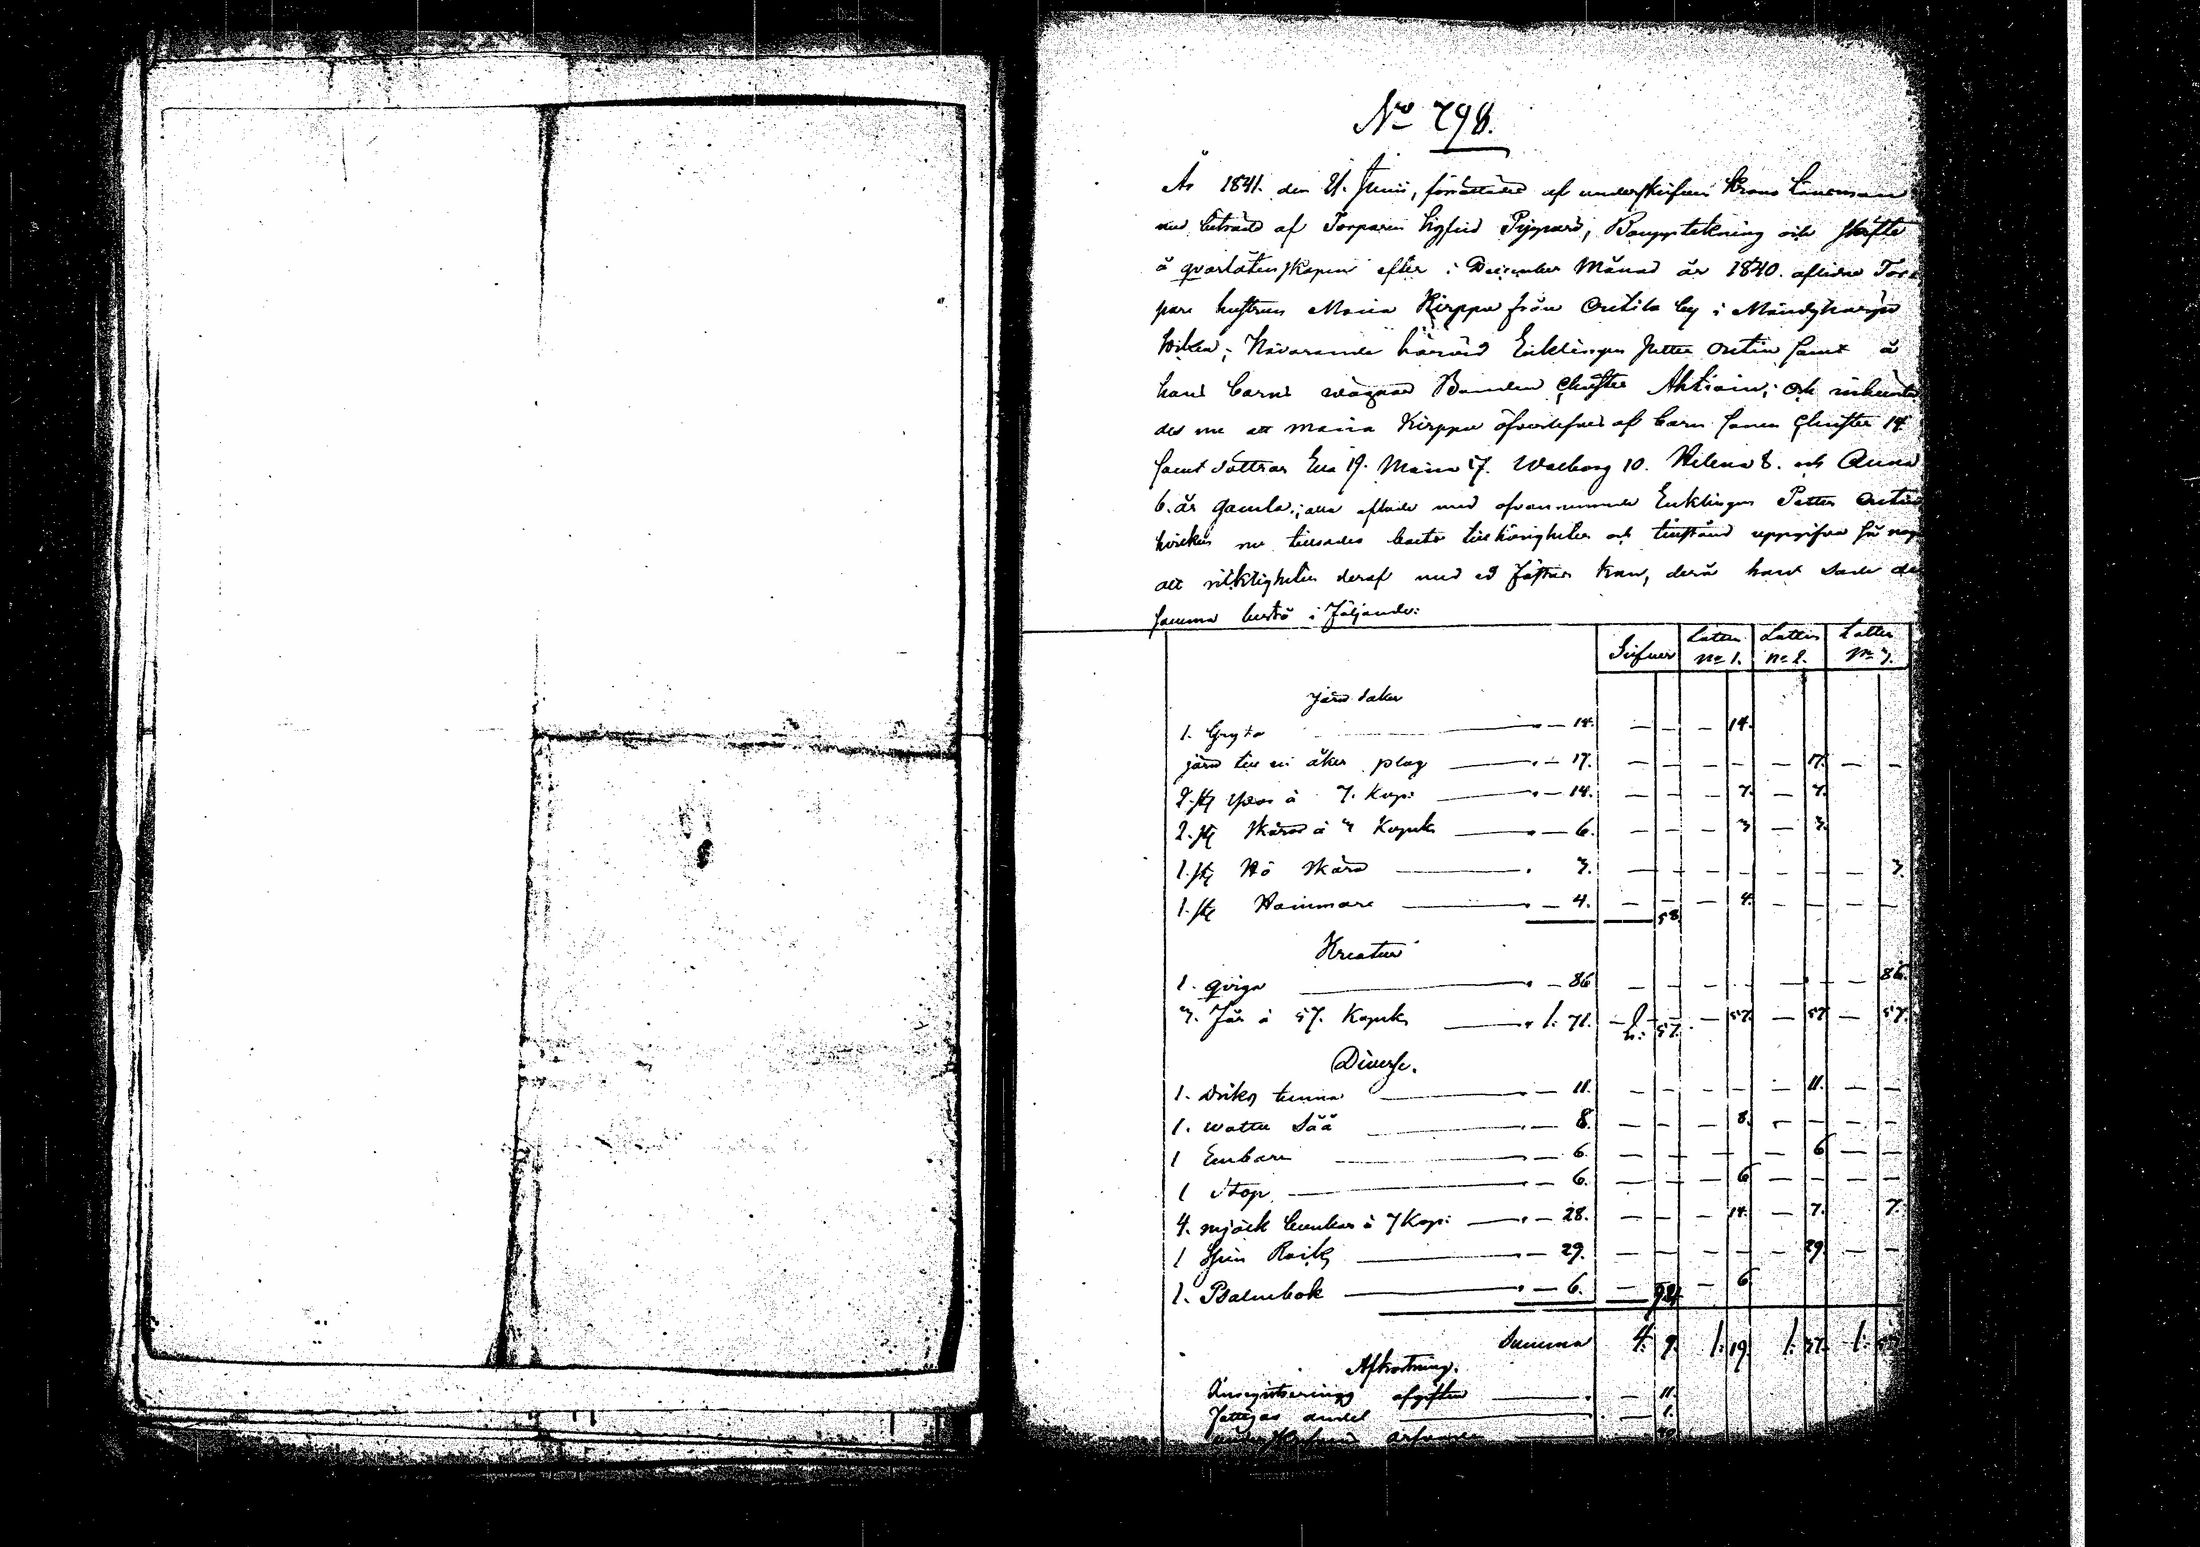 No 798.
År 1841. den 21. Junii, förrättades af underskrifven Krono Länsman
med biträde af Torparen Sigfrid Pyyparé, Bouppteckning och skifte
å qvarlåtenskapen efter i December Månad år 1840. aflidne Tor-
pare hustrun Maria Kirppu från Outila by i Mäntyharju
Socken; Närvarande härvid Enklingen Petter Outin samt å
hans barns wägnar Bonden Christer Ahtiain; Och inhemta
des nu att Maria Kirppu öfverlefves af barn sonen Christer 14
samt döttrar Eva 19. Maria 17. Walborg 10. Helena 8. och Anna
6. år gamla; alla aflade med ofvannemnde Enklingen Petter Outin
hvilken nu tillsades boets tillhörigheter och tillstånd uppgifva så noga
att riktigheten deraf med ed fästas kan, derå han sade den
samma bestå i följande:
Silfver Lotten No 1. Lotten No 2. Lotten No 3.
Järn saker
1. Gryta — 14. — — — 14.
järn till en åker plog — 17. — — — — — 17. — —
2. st yxor à 7. Kop: — 14. — — — 7. — 7.
2. st Skäror à 3 Kopek — 6. — — — 3 — 3.
1. st Hö Skära 3. — — — — — — — 3.
1. st Hammare — 4. — — — 4. — — — —
58
Kreatur
1. qviga — 86 — — — — — — — 86.
3. Får à 57. Kopek 1. 71. 2: 57. — 57. — 57 — 57.
Diverse.
1. Dricks tunna — 11. — — — — — 11. — —
1. watten Såå — 8. — — — 8. — — — —
1 Embare — 6. — — — — — 6 — —
1 Stop — 6. — — — 6 — — — —
4. mjölk bunkar à 7 Kop: — 28. — — — 14. — 7. 7.
1 Spin Råck — 29. — — — — — 29. — —
1. Psalmbok — 6. — 94. — 6
Summa 4. 9. 1. 19 1. 37. 1.
Afkortning.
afgiften — 11.
Fattigas andel — 1.